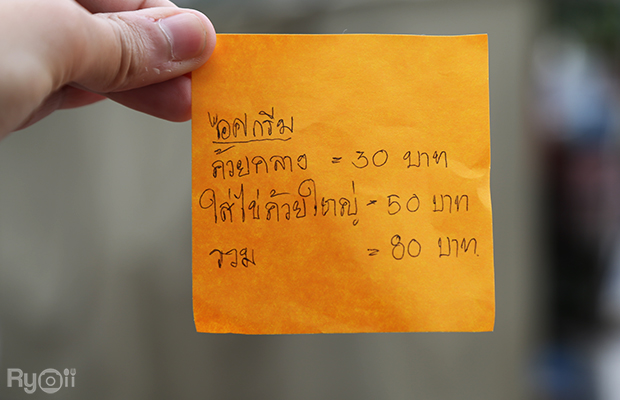 ไอศกรีม
ถ้วยกลาง = 30 บาท
ใส่ไข่ถ้วยใหญ่ = 50 บาท
รวม = 80 บาท
Ryoii